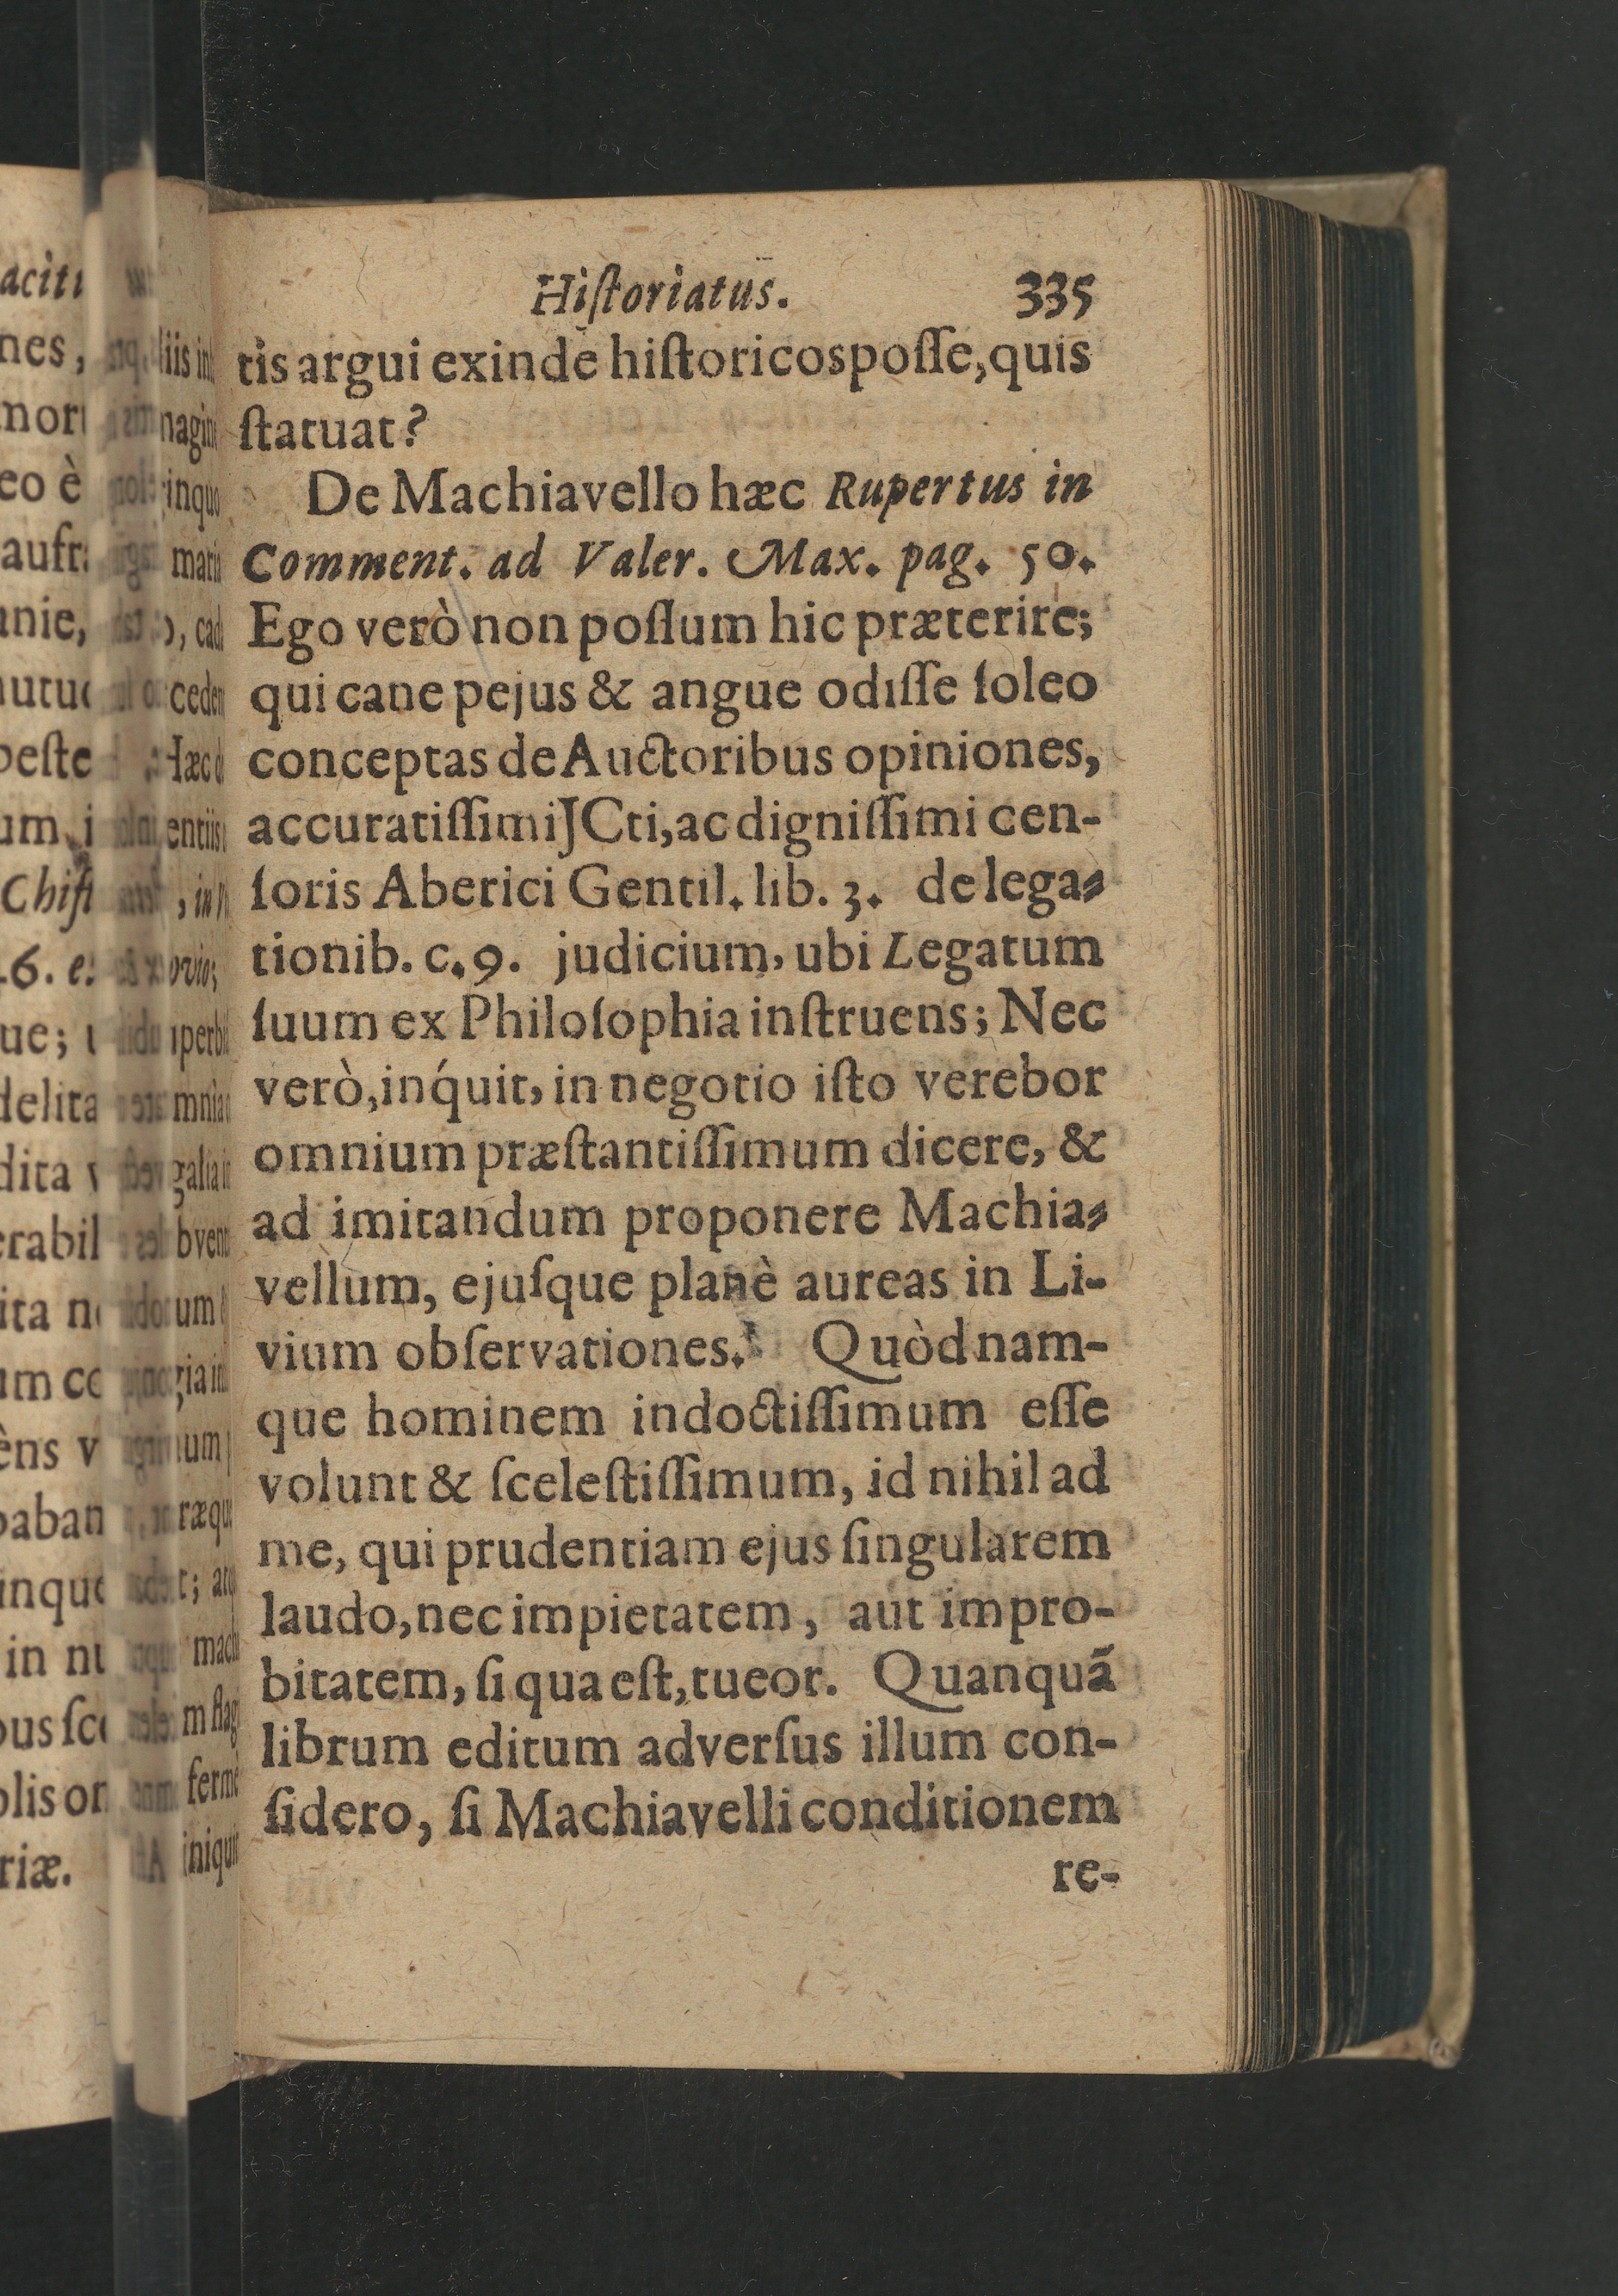 Hiſtoriatus. 335
tis argui exinde hiſtoricos poſſe, quis
ſtatuat?
De Machiavello hæc Rupertus in
Comment. ad Valer. Max. pag. 50.
Ego verò non poſſum hic præterire;
qui cane pejus & angue odiſſe ſoleo
conceptas de Auctoribus opiniones,
accuratiſſimi JCti, ac digniſſimi cen-
ſoris Aberici Gentil. lib. 3. de lega-
tionib. c. 9. judicium, ubi Legatum
ſuum ex Philoſophia inſtruens; Nec
verò, inq́uit, in negotio iſto verebor
omnium præſtantiſſimum dicere, &
ad imitandum proponere Machia-
vellum, ejuſque planè aureas in Li-
vium obſervationes. Quòd nam-
que hominem indoctiſſimum eſſe
volunt & ſceleſtiſſimum, id nihil ad
me, qui prudentiam ejus ſingularem
laudo, nec impietatem, aut impro-
bitatem, ſi qua eſt, tueor. Quanquã
librum editum adverſus illum con-
ſidero, ſi Machiavelli conditionem
re-